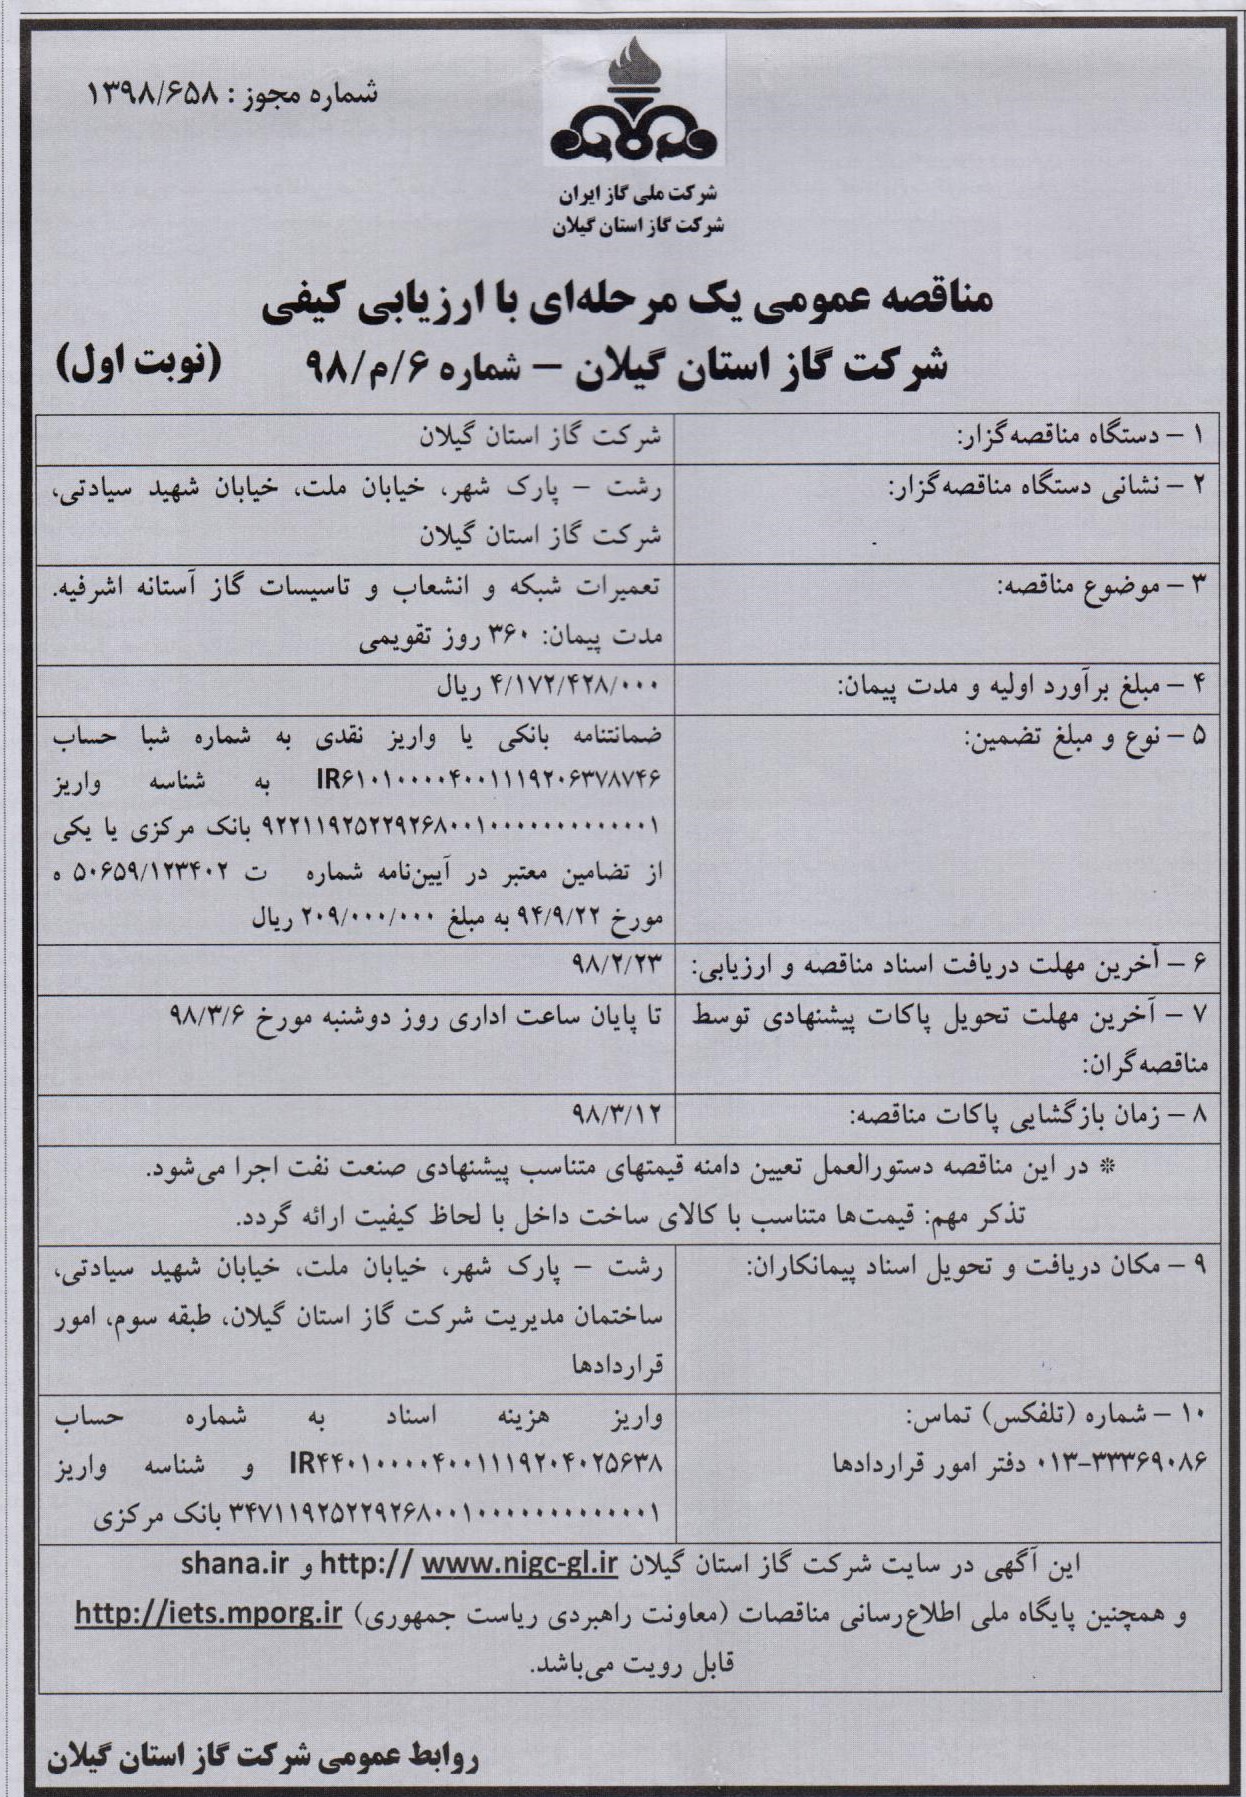 شماره مجوز : ۱۳۹۸/۶۵۸
شرکت ملی گاز ایران
شرکت گاز استان گیلان
مناقصه عمومی یک مرحله‌ای با ارزیابی کیفی
شرکت گاز استان گیلان – شماره ۶/م/۹۸ (نوبت اول)
۱ – دستگاه مناقصه‌گزار:
شرکت گاز استان گیلان
۲ – نشانی دستگاه مناقصه‌گزار:
رشت – پارک شهر، خیابان ملت، خیابان شهید سیادتی،
شرکت گاز استان گیلان
۳ – موضوع مناقصه:
تعمیرات شبکه و انشعاب و تاسیسات گاز آستانه اشرفیه.
مدت پیمان: ۳۶۰ روز تقویمی
۴ – مبلغ برآورد اولیه و مدت پیمان:
۴/۱۷۲/۴۲۸/۰۰۰ ریال
۵ – نوع و مبلغ تضمین:
ضمانتنامه بانکی یا واریز نقدی به شماره شبا حساب
IR۶۱۰۱۰۰۰۰۴۰۰۱۱۱۹۲۰۶۳۷۸۷۴۶ به شناسه واریز
۹۲۲۱۱۹۲۵۲۲۹۲۶۸۰۰۱۰۰۰۰۰۰۰۰۰۰۰۰۰۱ بانک مرکزی یا یکی
از تضامین معتبر در آیین‌نامه شماره ت ۵۰۶۵۹/۱۲۳۴۰۲ ه
مورخ ۹۴/۹/۲۲ به مبلغ ۲۰۹/۰۰۰/۰۰۰ ریال
۶ – آخرین مهلت دریافت اسناد مناقصه و ارزیابی:
۹۸/۲/۲۳
۷ – آخرین مهلت تحویل پاکات پیشنهادی توسط
مناقصه‌گران:
تا پایان ساعت اداری روز دوشنبه مورخ ۹۸/۳/۶
۸ – زمان بازگشایی پاکات مناقصه:
۹۸/۳/۱۲
* در این مناقصه دستورالعمل تعیین دامنه قیمتهای متناسب پیشنهادی صنعت نفت اجرا می‌شود.
تذکر مهم: قیمت‌ها متناسب با کالای ساخت داخل با لحاظ کیفیت ارائه گردد.
۹ – مکان دریافت و تحویل اسناد پیمانکاران:
رشت – پارک شهر، خیابان ملت، خیابان شهید سیادتی،
ساختمان مدیریت شرکت گاز استان گیلان، طبقه سوم، امور
قراردادها
۱۰ – شماره (تلفکس) تماس:
۰۱۳-۳۳۳۶۹۰۸۶ دفتر امور قراردادها
واریز هزینه اسناد به شماره حساب
IR۴۴۰۱۰۰۰۰۴۰۰۱۱۱۹۲۰۴۰۲۵۶۳۸ و شناسه واریز
۳۴۷۱۱۹۲۵۲۲۹۲۶۸۰۰۱۰۰۰۰۰۰۰۰۰۰۰۰۰۱ بانک مرکزی
این آگهی در سایت شرکت گاز استان گیلان http:// www.nigc-gl.ir و shana.ir
و همچنین پایگاه ملی اطلاع‌رسانی مناقصات (معاونت راهبردی ریاست جمهوری) http://iets.mporg.ir
قابل رویت می‌باشد.
روابط عمومی شرکت گاز استان گیلان